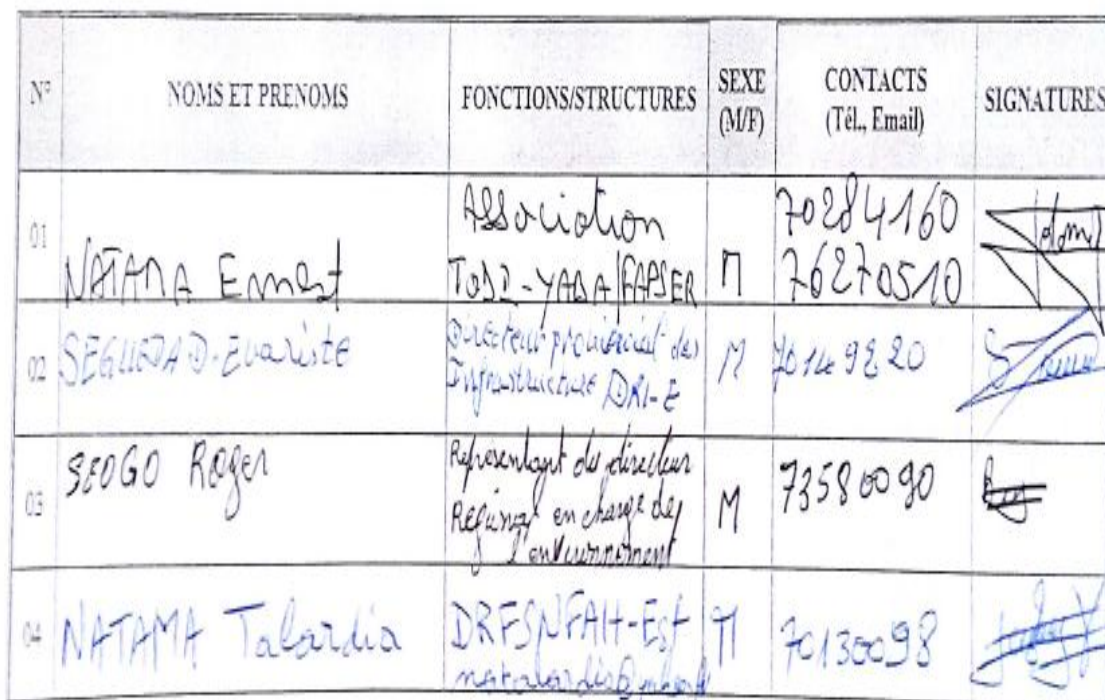 N° NOMS ET PRENOMS FONCTIONS/STRUCTURES SEXE (M/F) CONTACTS (Tél., Email) SIGNATURES
01 NATAMA Ernest Association M 70284160
76270510
02 SEGUEDA D. Evariste Directeur provincial des
Infrastructure DRI-E M
03 SEOGO Roger Représentant du directeur
Regional en charge de
l'environnement M 73580090
04 NATAMA Talardia DRFSNFAH-Est M 70130098